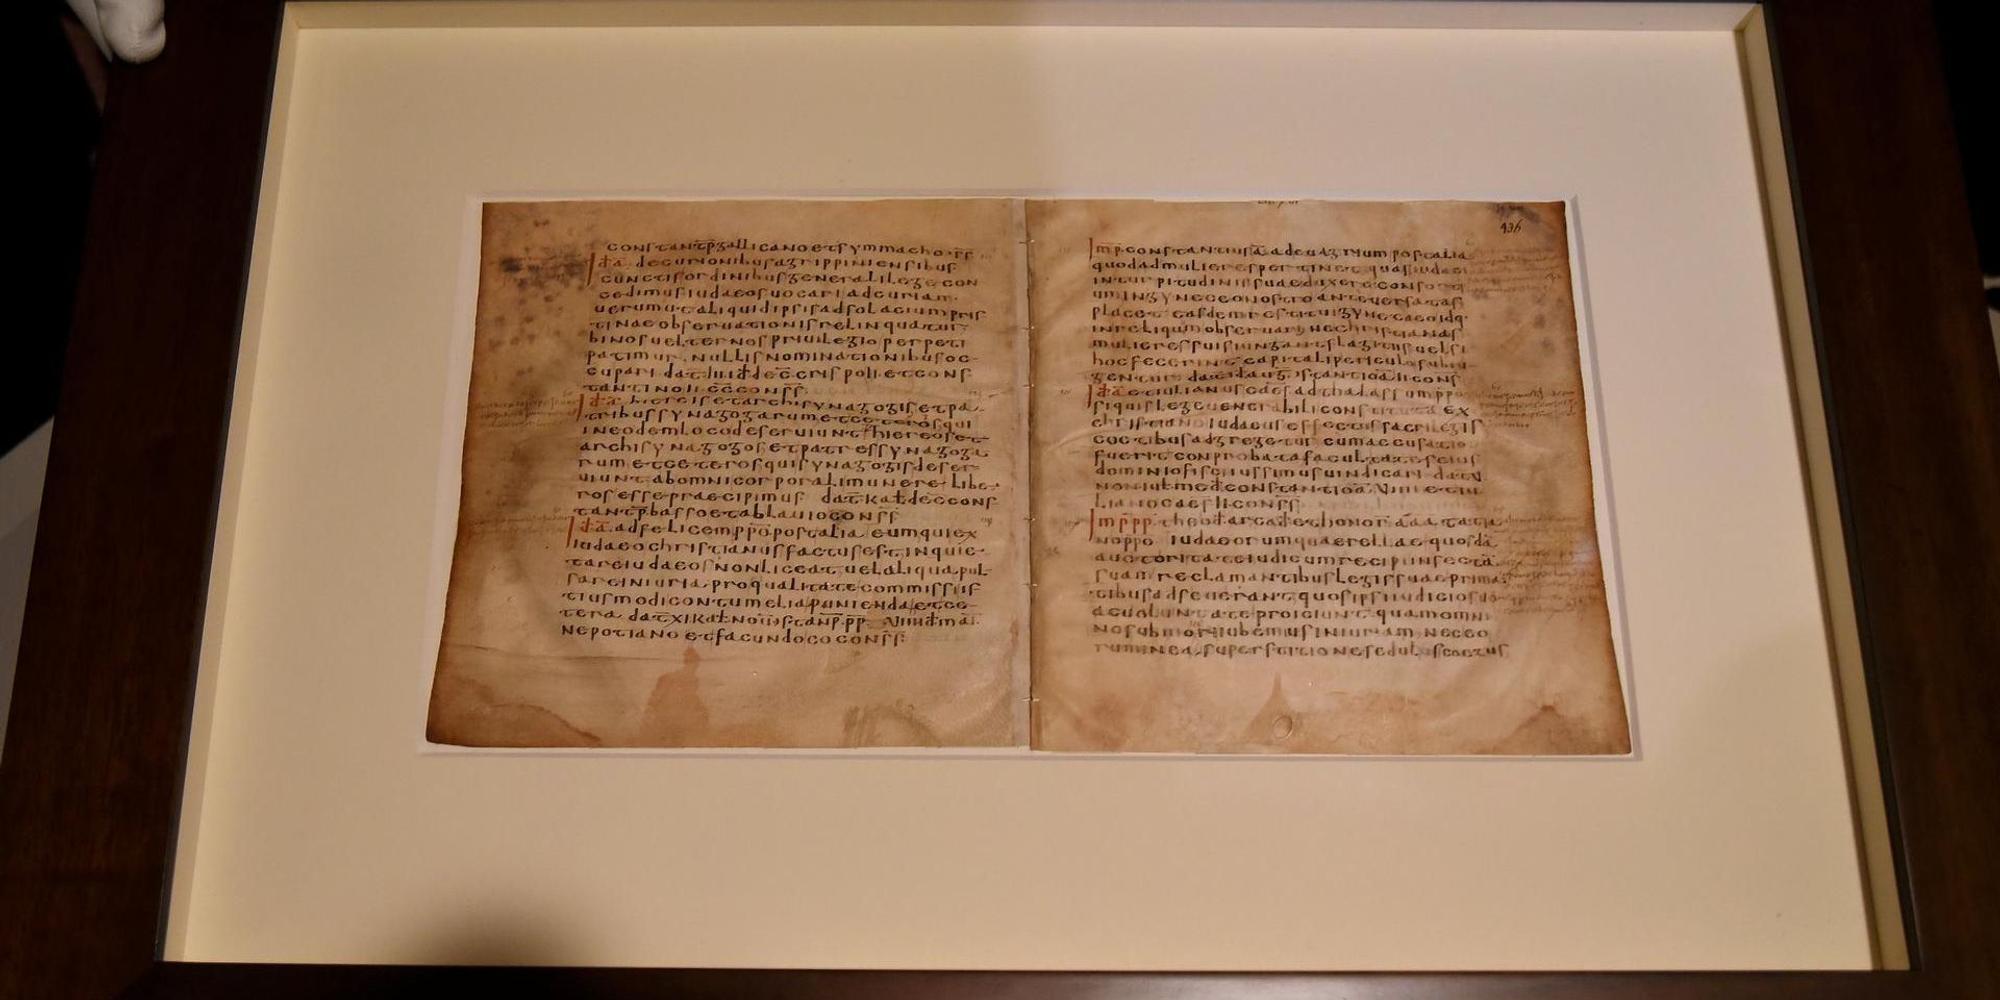 constantp̄ gallicano et symmacho·c̄s̄s̄
Id̄ā· decurionibus agrippiniensibus
cunctis ordinibus generali lege con
cedimus iudaeos uocari ad curiam·
uerum ut aliquid ipsis ad solacium pris
tinae obseruationis relinquatur
binos uel ternos priuilegio perpeti
patimur· nullis nominationibus oc
cupari dat̄ iii id̄ dec̄ crispo ii· et cons
tantino ii· c̄c̄ conss̄
Id̄ā· hiereis et archisynagogis et pa
tribus synagogarum et ceteros qui
in eodem loco deseruiunt hiereos et
archisynagogos et patres synagoga
rum et ceteros qui synagogis deser
uiunt ab omni corporali munere libe
ros esse praecipimus dat̄ kal̄ dec̄ cons
tantp̄ basso et ablauio conss̄
Id̄ā· ad felicem pp̄o post alia eum qui ex
iudaeo christianus factus est inquie
tare iudaeos non liceat uel aliqua pul
sare iniuria pro qualitate commissi is
tius modi contumelia punienda et ce
tera dat̄ xi kal̄ no constanp̄· pp̄ viii id̄ mai
nepotiano et facundo co conss̄
436
Imp̄· constantius ā· ad euagrium post alia
quod ad mulieres pertinet quas iudaei
in turpitudinis suae duxere consorti
um in gyneceo nostro ante uersatas
placet easdem restitui gynecaeo idq·
in reliquum obseruari ne christianas
mulieres suis iungant flagitiis uel si
hoc fecerint capitali periculo subiu
gentur dat̄ id̄ auḡ constantio ā ii conss̄
Id̄ā et iulianus caes ad thalassium ppo
si quis lege uenerabili constituta ex
christiano iudaeus effectus sacrilegis
coetibus adgregetur cum accusatio
fuerit conprobata facultates eius
dominio fisci iussimus uindicari dat̄ v
non iul med̄ constantio ā viiii et iu
liano caes ii conss̄
Imp̄pp̄· theod̄ arcad̄ et honor̄ āāā tatia
no ppo iudaeorum quaerellae quosdā
auctoritate iudicum recipi in sectā
suam reclamantibus legis suae prima
tibus adseuerant quos ipsi iudicio suo
ac uoluntate proiciunt quam omni
no submoueri iubemus iniuriam nec eo
rum in ea superstitione sedulus coetus